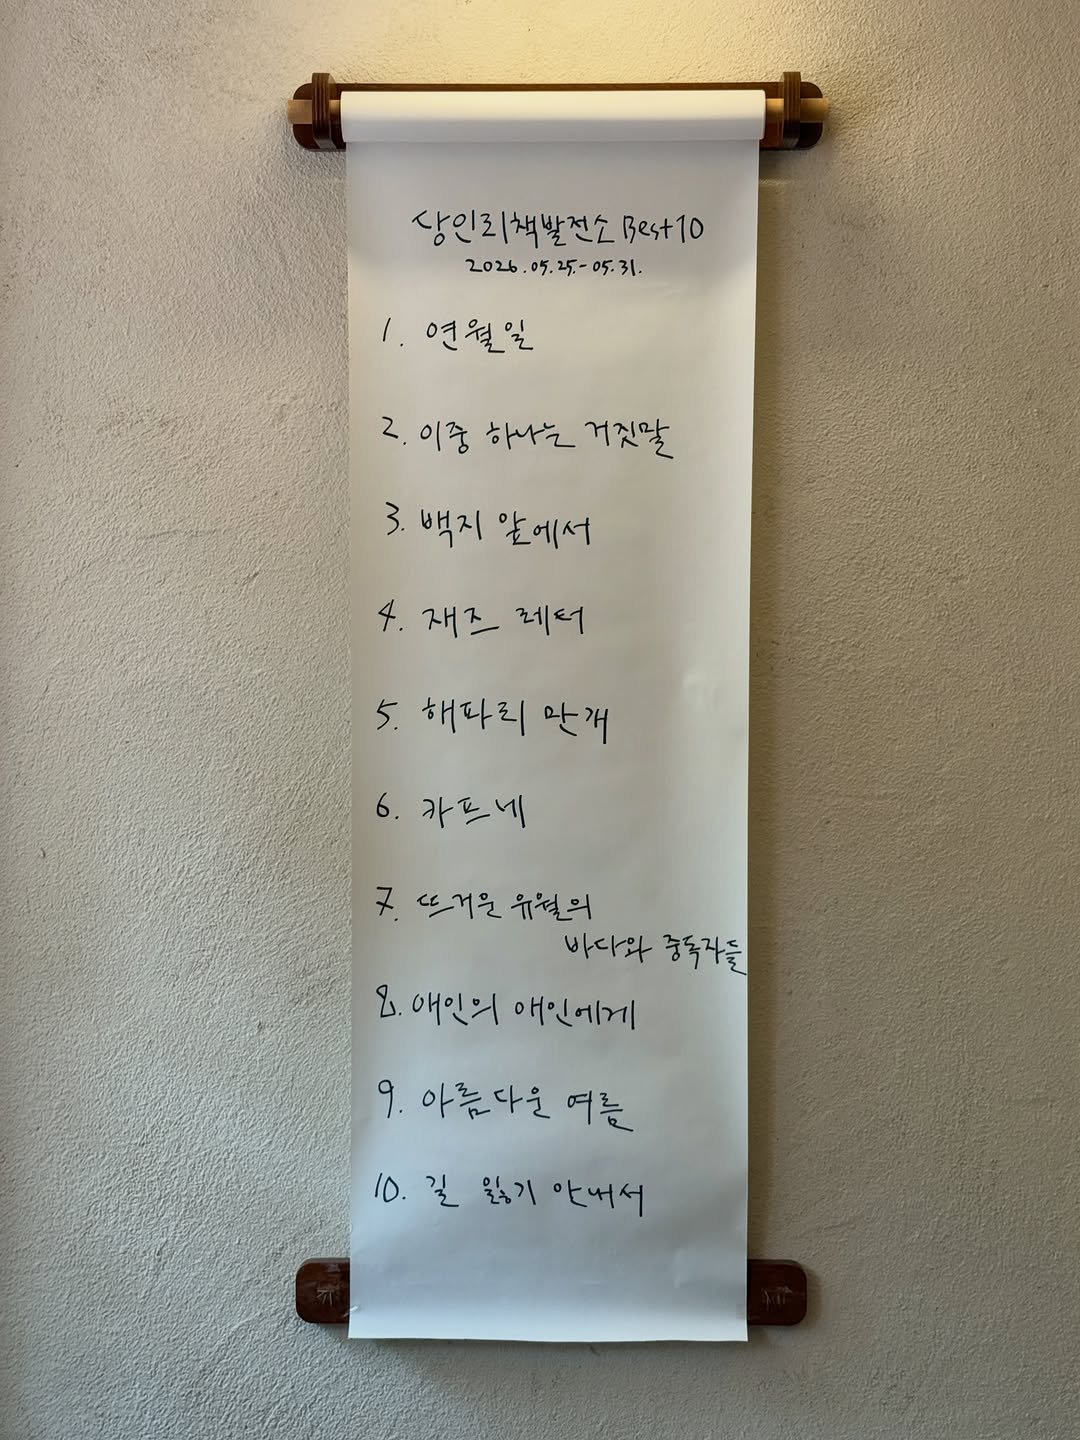 당인리책발전소 Best10
2026.05.25.-05.31.
1. 연월일
2. 이중 하나는 거짓말
3. 백지 앞에서
4. 재즈 레터
5. 해파리 만개
6. 카프네
7. 뜨거운 유월의
바다와 중독자들
8. 애인의 애인에게
9. 아름다운 여름
10. 길 잃기 안내서